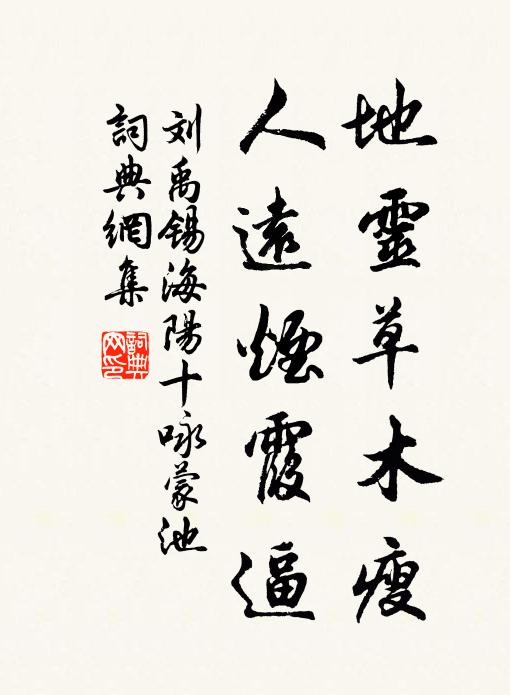 地靈草木瘦
人遠煙霞逼
刘禹锡海陽十咏蒙池
詞典網集
詞典網印